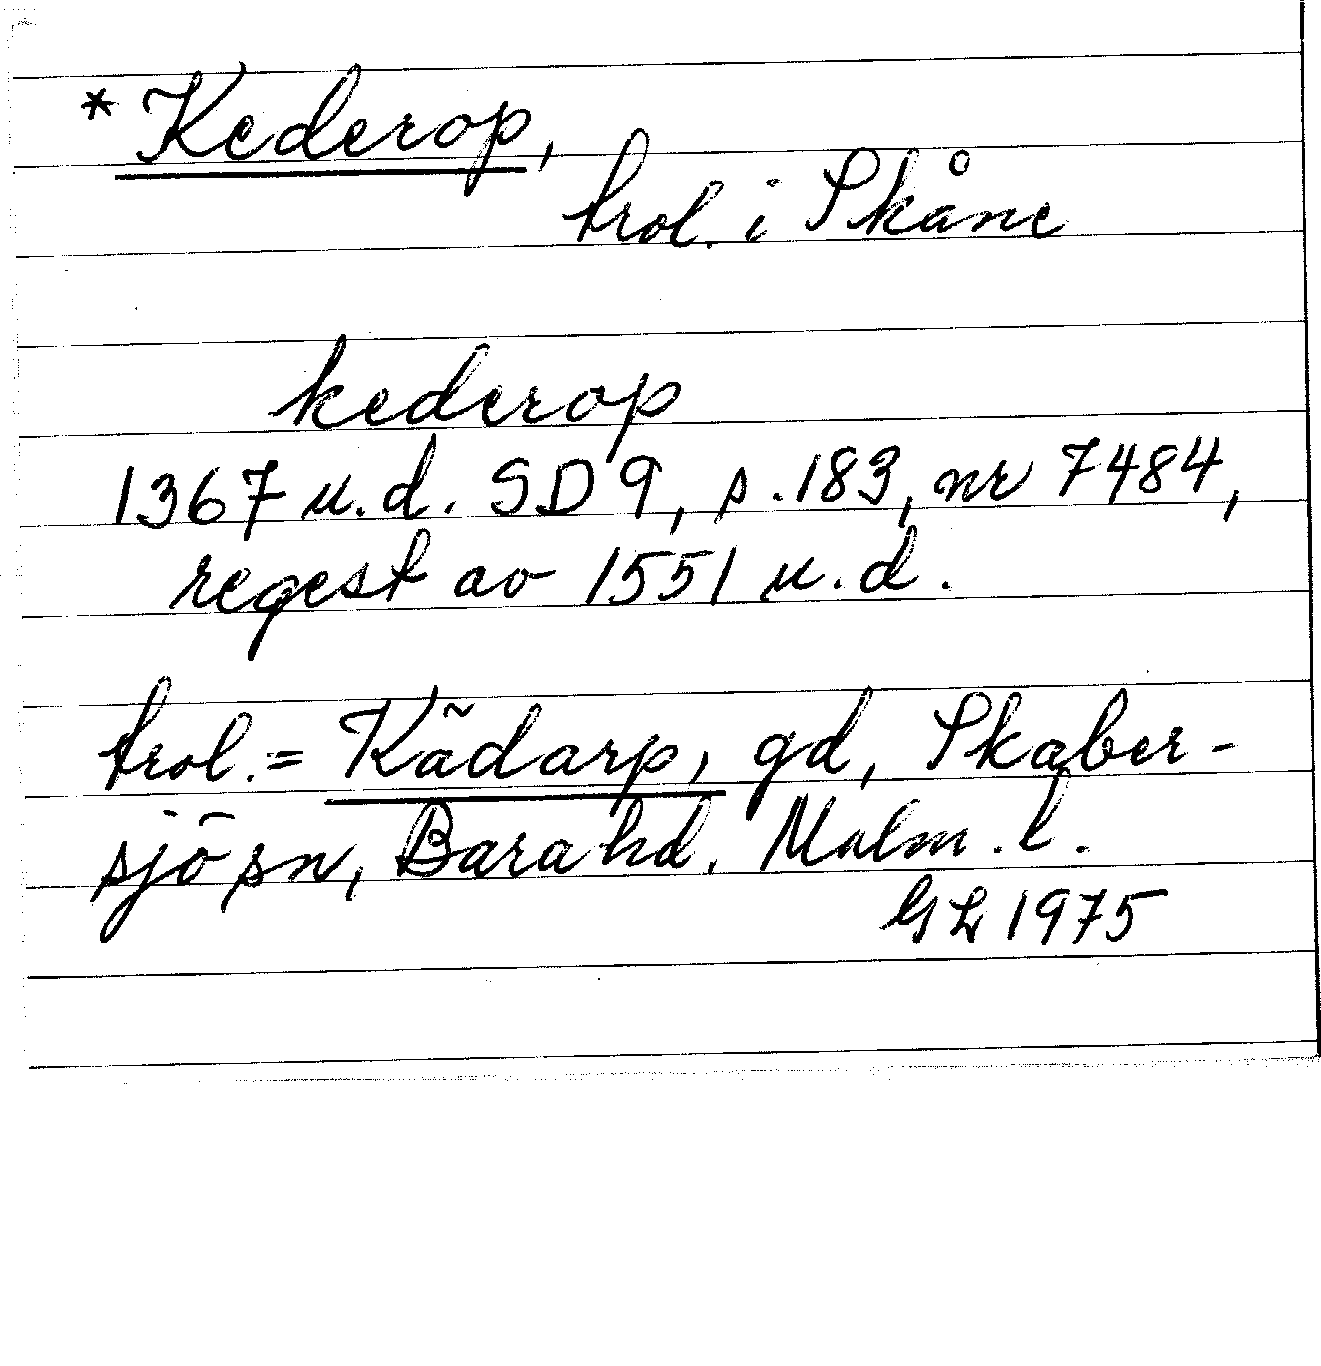 * Kederop,
trol. i Skåne
kederop
1367 u.d. SD 9, s. 183, nr 7484,
regest av 1551 u.d.
trol. = Kädarp, gd, Skaber-
sjö sn, Bara hd. Malm. l.
GL 1975